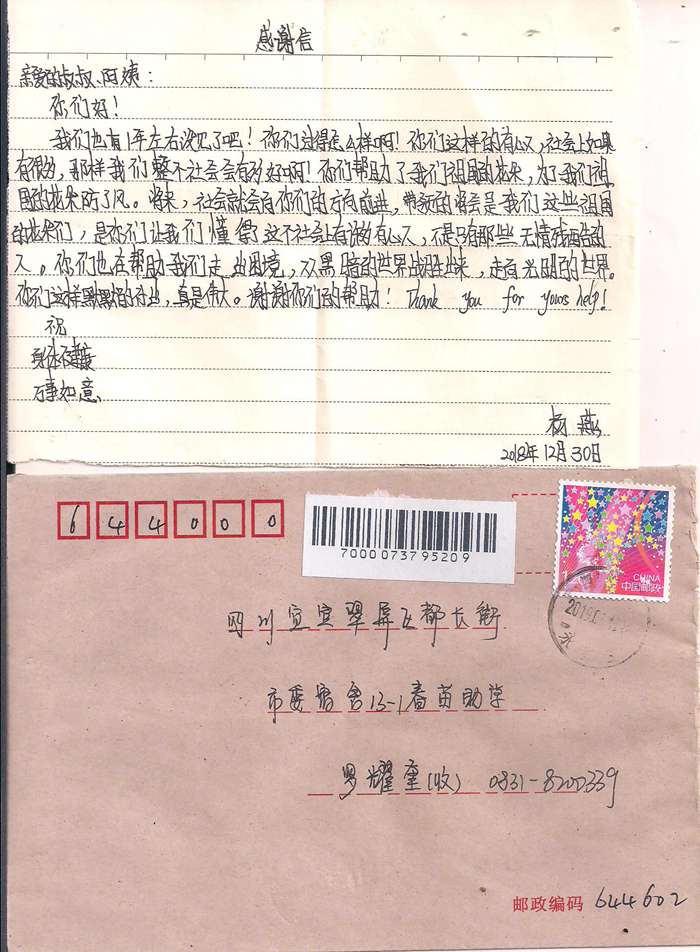 感谢信
亲爱的叔叔、阿姨：
你们好！
我们也有1年左右没见了吧！你们过得怎么样啊！你们这样的有心人，社会上如果
有很多，那样我们整个社会会有多好啊！你们帮助了我们祖国的花朵，为了我们祖
国的花朵防了风。将来，社会就会有你们的方向前进，带领的将会是我们这些祖国
的花朵们，是你们让我们懂得这个社会上有许多有心人，不是只有那些无情残酷的
人。你们也在帮助我们走出困境，从黑暗的世界战胜出来，走有光明的世界。
你们这样默默的付出，真是伟大。谢谢你们的帮助！Thank you for yours help!
祝
身体健康
万事如意
杨燕
2018年12月30日
644000
7000073795209
CHINA
中国邮政
四川宜宾翠屏区都长街
市委宿舍13-1春苗助学
罗耀奎(收) 0831-8200339
邮政编码 644602